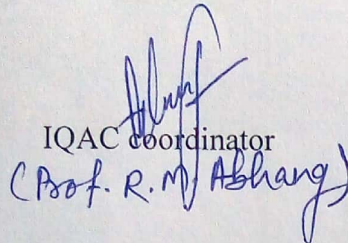 IQAC coordinator
(Prof. R. M. Abhang)